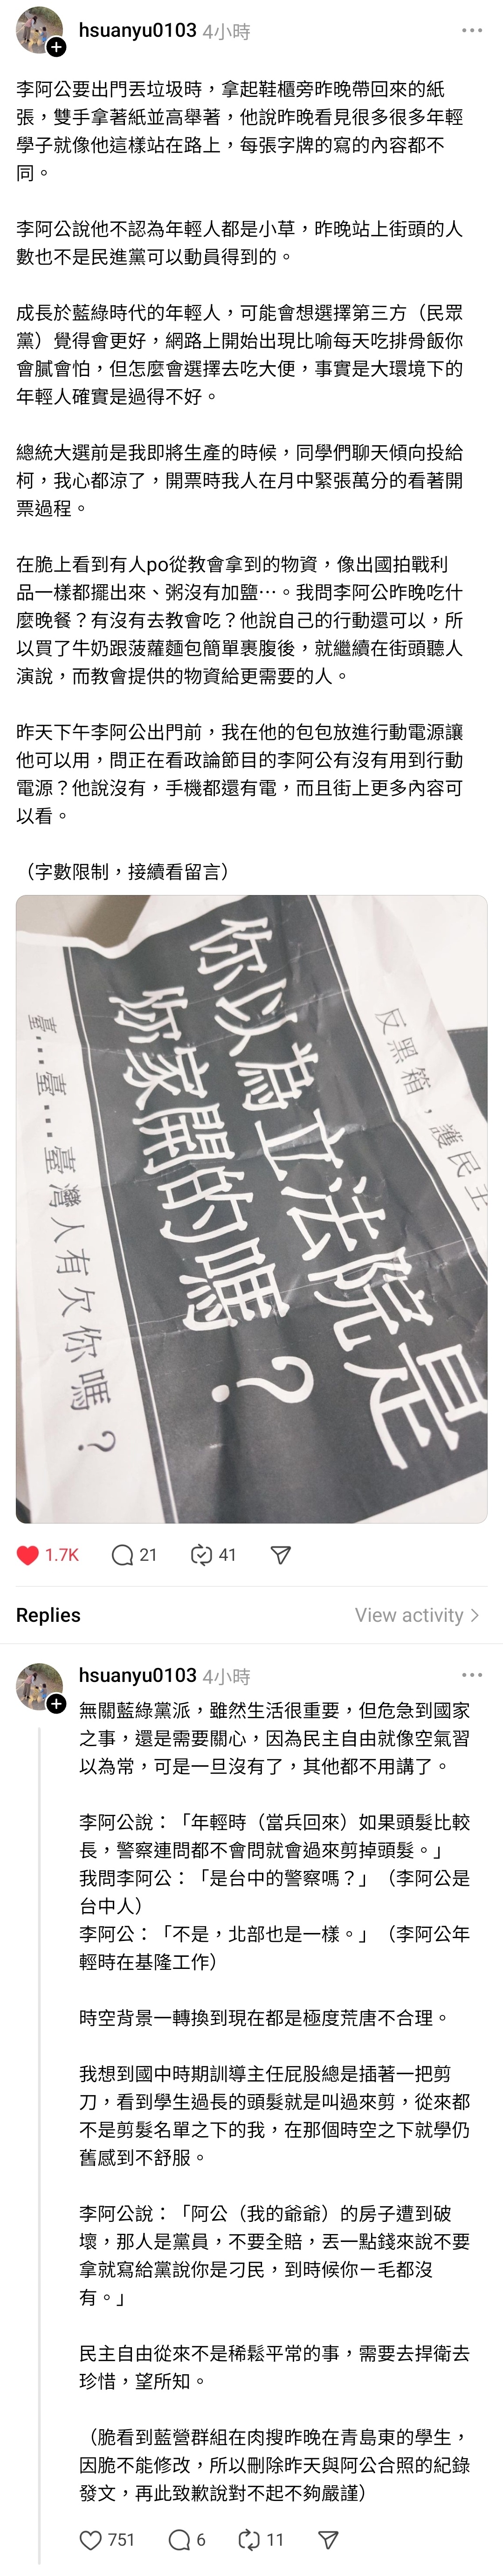 hsuanyu0103 4小時
李阿公要出門丟垃圾時，拿起鞋櫃旁昨晚帶回來的紙
張，雙手拿著紙並高舉著，他說昨晚看見很多很多年輕
學子就像他這樣站在路上，每張字牌的寫的內容都不
同。
李阿公說他不認為年輕人都是小草，昨晚站上街頭的人
數也不是民進黨可以動員得到的。
成長於藍綠時代的年輕人，可能會想選擇第三方（民眾
黨）覺得會更好，網路上開始出現比喻每天吃排骨飯你
會膩會怕，但怎麼會選擇去吃大便，事實是大環境下的
年輕人確實是過得不好。
總統大選前是我即將生產的時候，同學們聊天傾向投給
柯，我心都涼了，開票時我人在月中緊張萬分的看著開
票過程。
在脆上看到有人po從教會拿到的物資，像出國拍戰利
品一樣都擺出來、粥沒有加鹽⋯。我問李阿公昨晚吃什
麼晚餐？有沒有去教會吃？他說自己的行動還可以，所
以買了牛奶跟菠蘿麵包簡單裹腹後，就繼續在街頭聽人
演說，而教會提供的物資給更需要的人。
昨天下午李阿公出門前，我在他的包包放進行動電源讓
他可以用，問正在看政論節目的李阿公有沒有用到行動
電源？他說沒有，手機都還有電，而且街上更多內容可
以看。
（字數限制，接續看留言）
反黑箱，護民主
你以為立法院是
你家開的嗎？
臺...臺...臺灣人有欠你嗎？
1.7K 21 41
Replies View activity
hsuanyu0103 4小時
無關藍綠黨派，雖然生活很重要，但危急到國家
之事，還是需要關心，因為民主自由就像空氣習
以為常，可是一旦沒有了，其他都不用講了。
李阿公說：「年輕時（當兵回來）如果頭髮比較
長，警察連問都不會問就會過來剪掉頭髮。」
我問李阿公：「是台中的警察嗎？」（李阿公是
台中人）
李阿公：「不是，北部也是一樣。」（李阿公年
輕時在基隆工作）
時空背景一轉換到現在都是極度荒唐不合理。
我想到國中時期訓導主任屁股總是插著一把剪
刀，看到學生過長的頭髮就是叫過來剪，從來都
不是剪髮名單之下的我，在那個時空之下就學仍
舊感到不舒服。
李阿公說：「阿公（我的爺爺）的房子遭到破
壞，那人是黨員，不要全賠，丟一點錢來說不要
拿就寫給黨說你是刁民，到時候你一毛都沒
有。」
民主自由從來不是稀鬆平常的事，需要去捍衛去
珍惜，望所知。
（脆看到藍營群組在肉搜昨晚在青島東的學生，
因脆不能修改，所以刪除昨天與阿公合照的紀錄
發文，再此致歉說對不起不夠嚴謹）
751 6 11